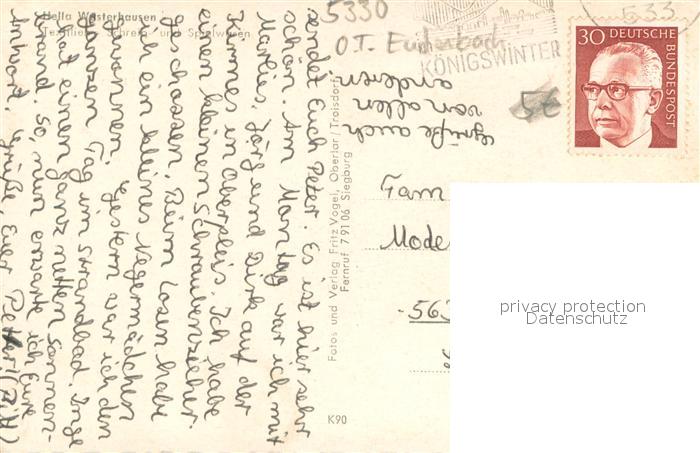 Hella Westerhausen
Textilien - Schreib- und Spielwaren
5330
O.T. Eudenbach
KÖNIGSWINTER
533
30 DEUTSCHE
BUNDESPOST
5€
Grüße auch
von allen
anderen.
sendet Euch Peter. Es ist hier sehr
schön. Am Montag war ich mit
Mareies, Jörg und Dirk auf der
Kirmes in Oberpleis. Ich habe
einen kleinen Schraubenzieher
geschossen. Beim Losen habe
ich ein kleines Negermädchen
gewonnen. Gestern war ich den
ganzen Tag im Strandbad. Inge
hat einen ganz netten Sonnen-
brand. So, nun erwarte ich Eure
Antwort. Grüße, Euer Peter! (Pitt)
Fotos und Verlag Fritz Vogel, Oberlar / Troisdorf
Fernruf 7 91 06 Siegburg
K90
Fam
Mode
563
privacy protection
Datenschutz